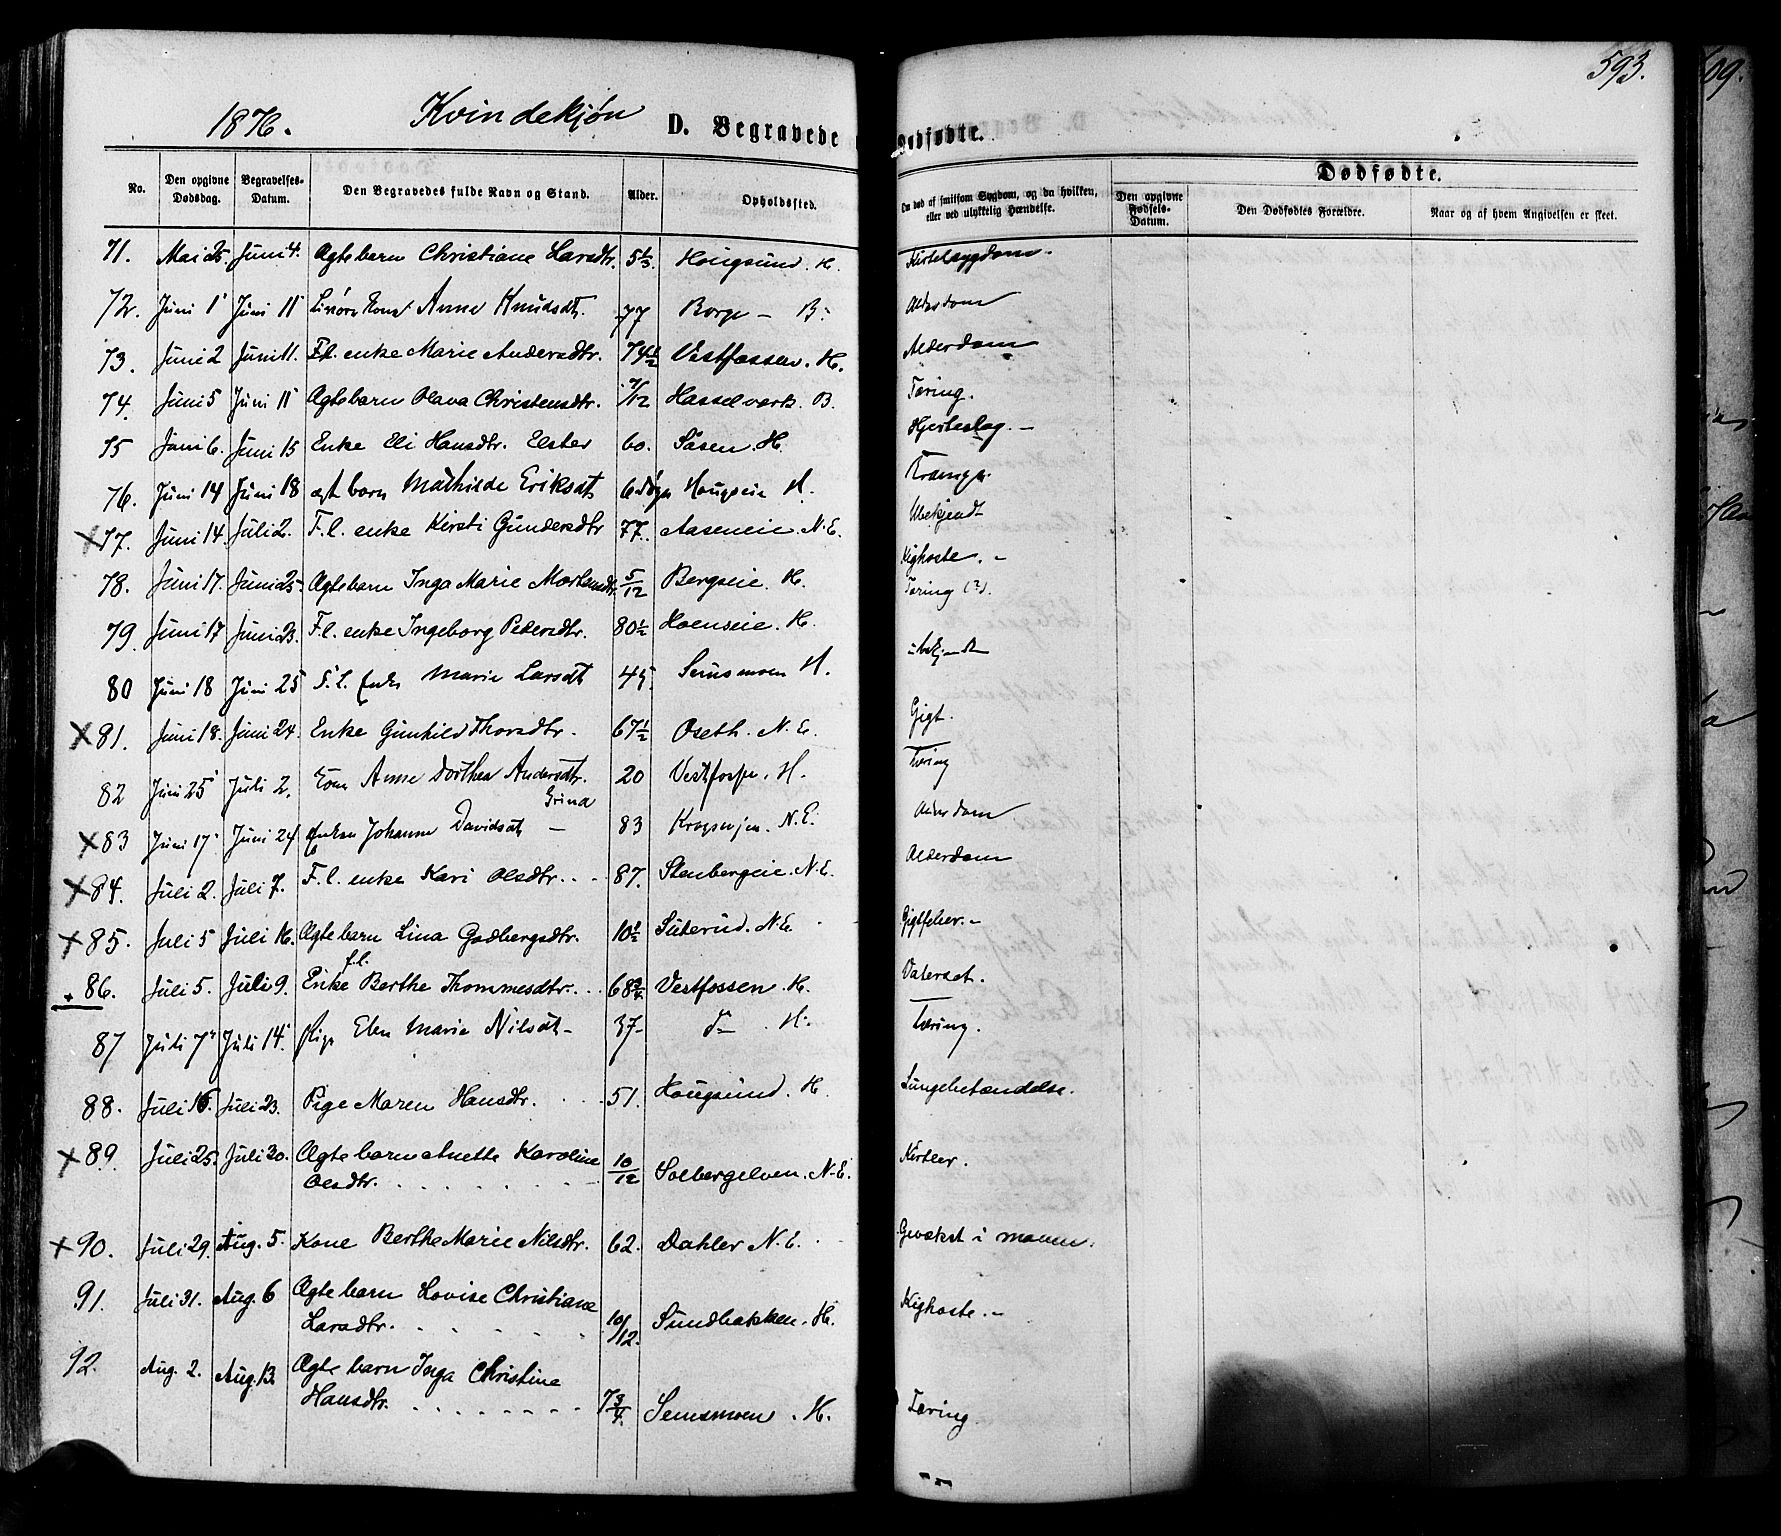 593.
09.
1876. Kvindekjøn D. Begravede Dødfødte.
Dødfødte.
No. Den opgivne Dødsdag. Begravelses-Datum. Den Begravedes fulde Navn og Stand. Alder. Opholdssted. Om død af smitsom Sygdom, og da hvilken, eller ved ulykkelig Hændelse. Den opgivne Fødsels-Datum. Den Dødfødtes Forældre. Naar og af hvem Angivelsen er skeet.
71. Mai 25. Juni 4. Ægtebarn Christiane Larsdtr. 5 1/3. Hougsund. H. Kirtelsygdom.
72. Juni 1 Juni 11 Anne Knudsdt. 77 Borge - B. Alderdom
73. Juni 2 Juni 11. F.l. enke Marie Andersdtr. 74 1/2 Vestfossen. H. Alderdom
74. Juni 5 Juni 11 Ægtebarn Olava Christensdtr. 7/12 Hasselverk. B. Tæring.
75 Juni 6. Juni 15 Enke Eli Hansdtr. Elster 60. Såsen. H. Hjerteslag. -
76. Juni 14 Juni 18 ægt barn Mathilde Eriksdt 6 Døgn Hougseie H. Krampe.
X 77. Juni 14. Juli 2. F.l. enke Kirsti Gundersdtr 77. Aaseneie. N.E. Ubekjendt
78. Juni 17. Juni 25. Ægtebarn Inga Marie 5/12 Bergseie. H. Kighoste. -
79. Juni 17 Juni 23. F.l. enke Ingeborg Pedersdtr. 80 1/2 Hoenseie. H. Tæring (?).
80 Juni 18 Juni 25 F.l. Enke Marie Larsdt 45. Semsmoen H. ubekjendt
X 81. Juni 18. Juni 24. Enke Gunhild Thorsdtr. 67 1/2 Oseth. N.E. Gigt.
82 Juni 25 Juli 2. Kone Anne Dorthea Andersdtr. 20 Vestfossen. H. Tæring
Grina
X 83 Juni 17 Juni 24 Enken Johanne Davidsdt - 83 N.E. Alderdom
X 84. Juli 2. Juli 7. F.l. enke Kari Olsdtr. 87. Stenbergeie. N.E. Alderdom
X 85. Juli 5 Juli 16. Ægtebarn Lina Gudbergsdtr. 10 1/2 Suterud. N.E. Gigtfeber. -
f.l.
+ 86. Juli 5. Juli 9. Enke Berthe Thommesdtr. 68 3/4 Vestfossen. H. Vatersot.
87 Juli 7 Juli 14. Pige Elen Marie Nilsdt - 37- do. H. Tæring.
88. Juli 16. Juli 23. Pige Maren Hansdtr. 51. Hougsund. H. Lungebetændelse.
X 89. Juli 25. Juli 30. Ægtebarn Anette Karoline
Olsdtr. 10/12 Solbergelven. N.E. Kirtler.
X 90. Juli 29. Aug. 5. Kone Berthe Marie Nilsdtr. 62. Dahler N.E. Gevækst i maven.
91. Juli 31. Aug. 6 Ægte barn Lovise Christiane
Larsdtr. 10/12. Sundbakken. H. Kighoste. -
92. Aug. 2. Aug. 13. Ægte barn Inga Christine
Hansdtr. 7 3/4. Semsmoen. H. Tæring.